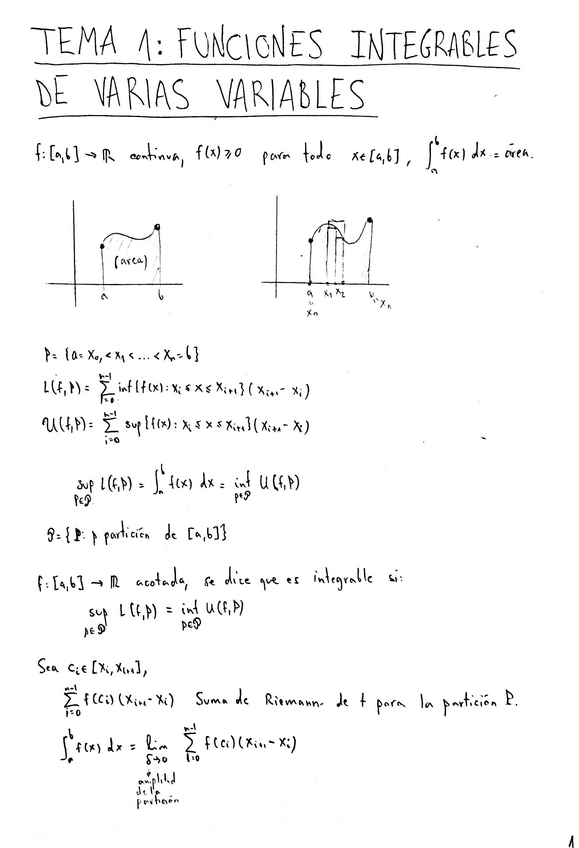 TEMA 1: FUNCIONES INTEGRABLES
DE VARIAS VARIABLES
f: [a,b] → ℝ continua, f(x) ≥ 0 para todo x ∈ [a,b], ∫_a^b f(x) dx = área.
(area)
a b
a x₁ x₂ b
" "
x₀ xₙ
P = {a = x₀, < x₁ < ... < xₙ = b}
L(f,P) = ∑_{i=0}^{n-1} inf{f(x): xᵢ ≤ x ≤ xᵢ₊₁}(xᵢ₊₁ - xᵢ)
U(f,P) = ∑_{i=0}^{n-1} sup{f(x): xᵢ ≤ x ≤ xᵢ₊₁}(xᵢ₊₁ - xᵢ)
sup_{P∈𝒫} L(f,P) = ∫_a^b f(x) dx = inf_{P∈𝒫} U(f,P)
𝒫 = {P: p partición de [a,b]}
f: [a,b] → ℝ acotada, se dice que es integrable si:
sup_{P∈𝒫} L(f,P) = inf_{P∈𝒫} U(f,P)
Sea cᵢ ∈ [xᵢ, xᵢ₊₁],
∑_{i=0}^{n-1} f(cᵢ)(xᵢ₊₁ - xᵢ) Suma de Riemann. de f para la partición P.
∫_a^b f(x) dx = lim_{δ→0} ∑_{i=0}^{n-1} f(cᵢ)(xᵢ₊₁ - xᵢ)
amplitud
de la
partición
1